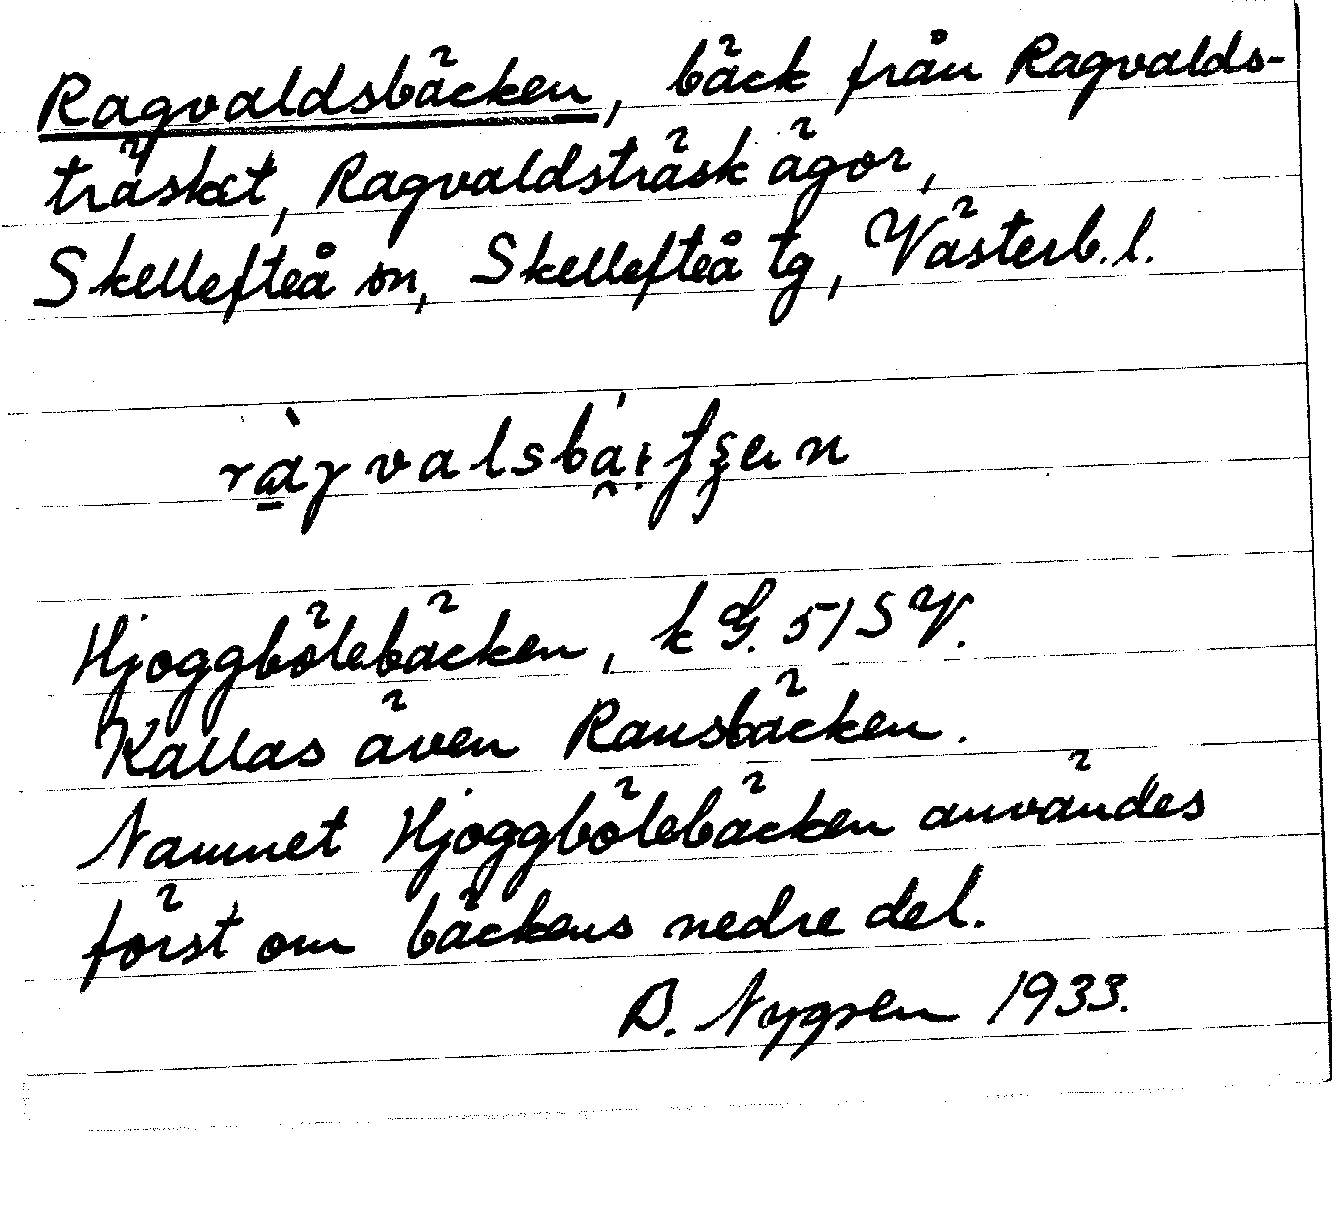 Ragvaldsbäcken, bäck från Ragvalds-
träsket, Ragvaldsträsk ägor,
Skellefteå sn, Skellefteå tg, Västerb. l.
Hjoggbölebäcken, k G. 51 SV.
Kallas även Rausbäcken.
Namnet Hjoggbölebäcken användes
först om bäckens nedre del.
B. Nygren 1933.